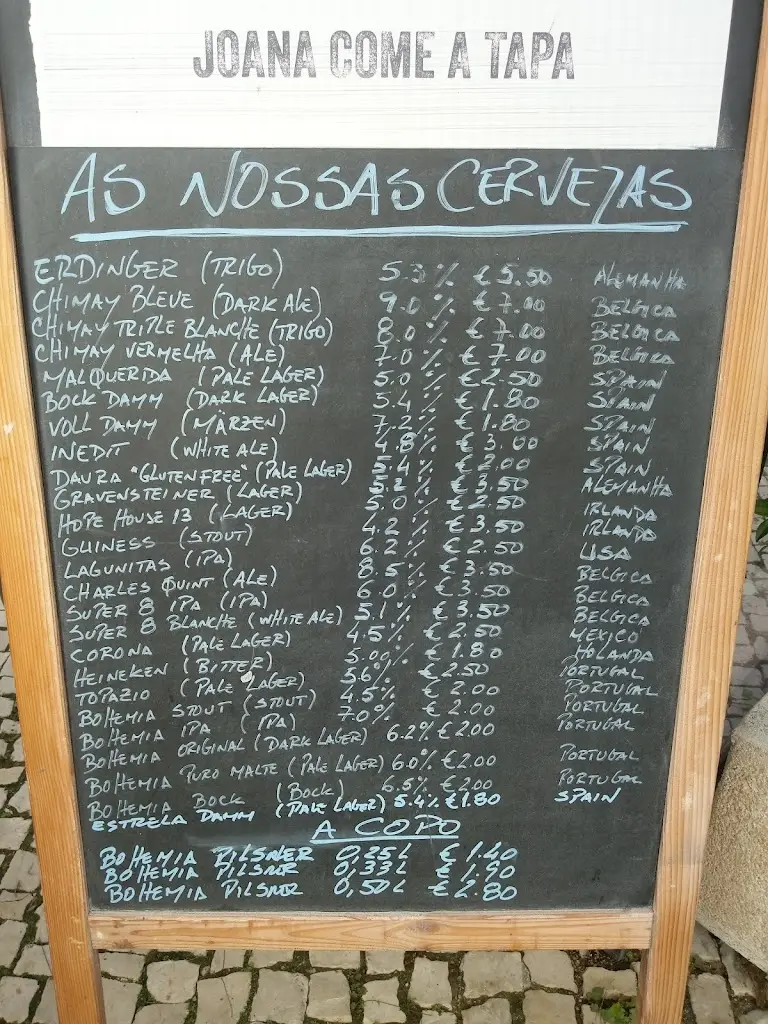 JOANA COME A TAPA
AS NOSSAS CERVEZAS
ERDINGER (TRIGO) 5.3% €5.50 ALEMANHA
CHIMAY BLEVE (DARK ALE) 9.0% €7.00 BELGICA
CHIMAY TRIPLE BLANCHE (TRIGO) 8.0% €7.00 BELGICA
CHIMAY VERMELHA (ALE) 7.0% €7.00 BELGICA
MALQUERIDA (PALE LAGER) 5.0% €2.50 SPAIN
BOCK DAMM (DARK LAGER) 5.4% €1.80 SPAIN
VOLL DAMM (MÄRZEN) 7.2% €1.80 SPAIN
INEDIT (WHITE ALE) 4.8% €3.00 SPAIN
DAURA "GLUTEN FREE" (PALE LAGER) 5.4% €2.00 SPAIN
GRAVENSTEINER (LAGER) 5.2% €3.50 ALEMANHA
HOPE HOUSE 13 (LAGER) 5.0% €2.50 IRLANDA
GUINESS (STOUT) 4.2% €3.50 IRLANDA
LAGUNITAS (IPA) 6.2% €2.50 USA
CHARLES QUINT (ALE) 8.5% €3.50 BELGICA
SUPER 8 IPA (IPA) 6.0% €3.50 BELGICA
SUPER 8 BLANCHE (WHITE ALE) 5.1% €3.50 BELGICA
CORONA (PALE LAGER) 4.5% €2.50 MEXICO
HEINEKEN (BITTER) 5.00% €1.80 HOLANDA
TOPAZIO (PALE LAGER) 5.6% €2.50 PORTUGAL
BOHEMIA STOUT (STOUT) 4.5% €2.00 PORTUGAL
BOHEMIA IPA (IPA) 7.0% €2.00 PORTUGAL
BOHEMIA ORIGINAL (DARK LAGER) 6.2% €2.00 PORTUGAL
BOHEMIA PURO MALTE (PALE LAGER) 6.0% €2.00 PORTUGAL
BOHEMIA BOCK (BOCK) 6.5% €2.00 PORTUGAL
ESTRELA DAMM (PALE LAGER) 5.4% €1.80 SPAIN
A COPO
BOHEMIA PILSNER 0,25L €1.40
BOHEMIA PILSNER 0,33L €1.90
BOHEMIA PILSNER 0,50L €2.80